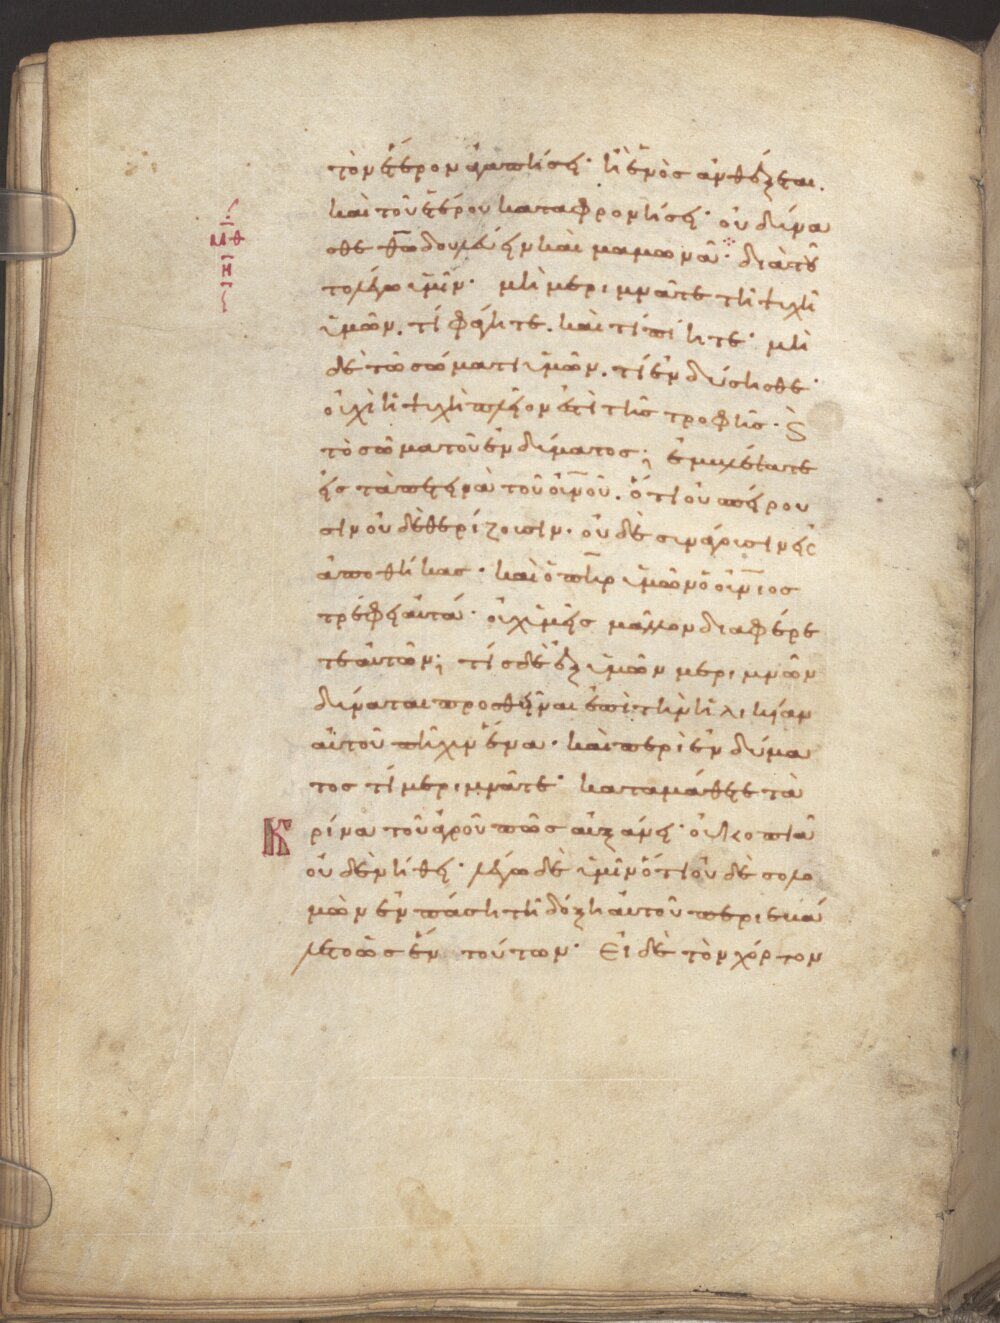 τὸν ἕτερον ἀγαπήσει· ἢ ἑνὸς ἀνθέξεται.
καὶ τοῦ ἑτέρου καταφρονήσει· οὐ δύνα
σθε θ̅ω̅ δουλεύειν καὶ μαμωνᾶ· διὰ τοῦ
μθ
το λέγω ὑμῖν· μὴ μεριμνᾶτε τῆ ψυχῆ
η
ὑμῶν. τί φάγητε. καὶ τί πίητε· μὴ
δὲ τῶ σώματι ὑμῶν. τί ἐνδύσησθε·
οὐχὶ ἡ ψυχὴ πλεῖον ἐστὶ τῆς τροφῆς· ϗ
τὸ σῶμα τοῦ ἐνδύματος; ἐμβλέψατε
εἰς τὰ πετεινὰ τοῦ οὐ̅ν̅οῦ. ὅτι οὐ σπείρου
σιν οὐδὲ θερίζουσιν. οὐδὲ συνάγουσιν εἰς
ἀποθήκας· καὶ ὁ π̅η̅ρ ὑμῶν ὁ οὐ̅ν̅ιος
τρέφει αὐτά· οὐχ ὑμεῖς μᾶλλον διαφέρε
τε αὐτῶν; τίς δὲ ἐξ ὑμῶν μεριμνῶν
δύναται προσθεῖναι ἐπὶ τὴν ἡλικίαν
αὐτοῦ πῆχυν ἕνα· καὶ περὶ ἐνδύμα
τος τί μεριμνᾶτε· καταμάθετε τὰ
κρίνα τοῦ ἀγροῦ πῶς αὐξάνει· οὐ κοπιᾶ
οὐδὲ νήθει· λέγω δὲ ὑμῖν ὅτι οὐδὲ σολο
μὼν ἐν πάση τῆ δόξη αὐτοῦ περιεβά
λετο ὡς ἓν τούτων· Εἰ δὲ τὸν χόρτον